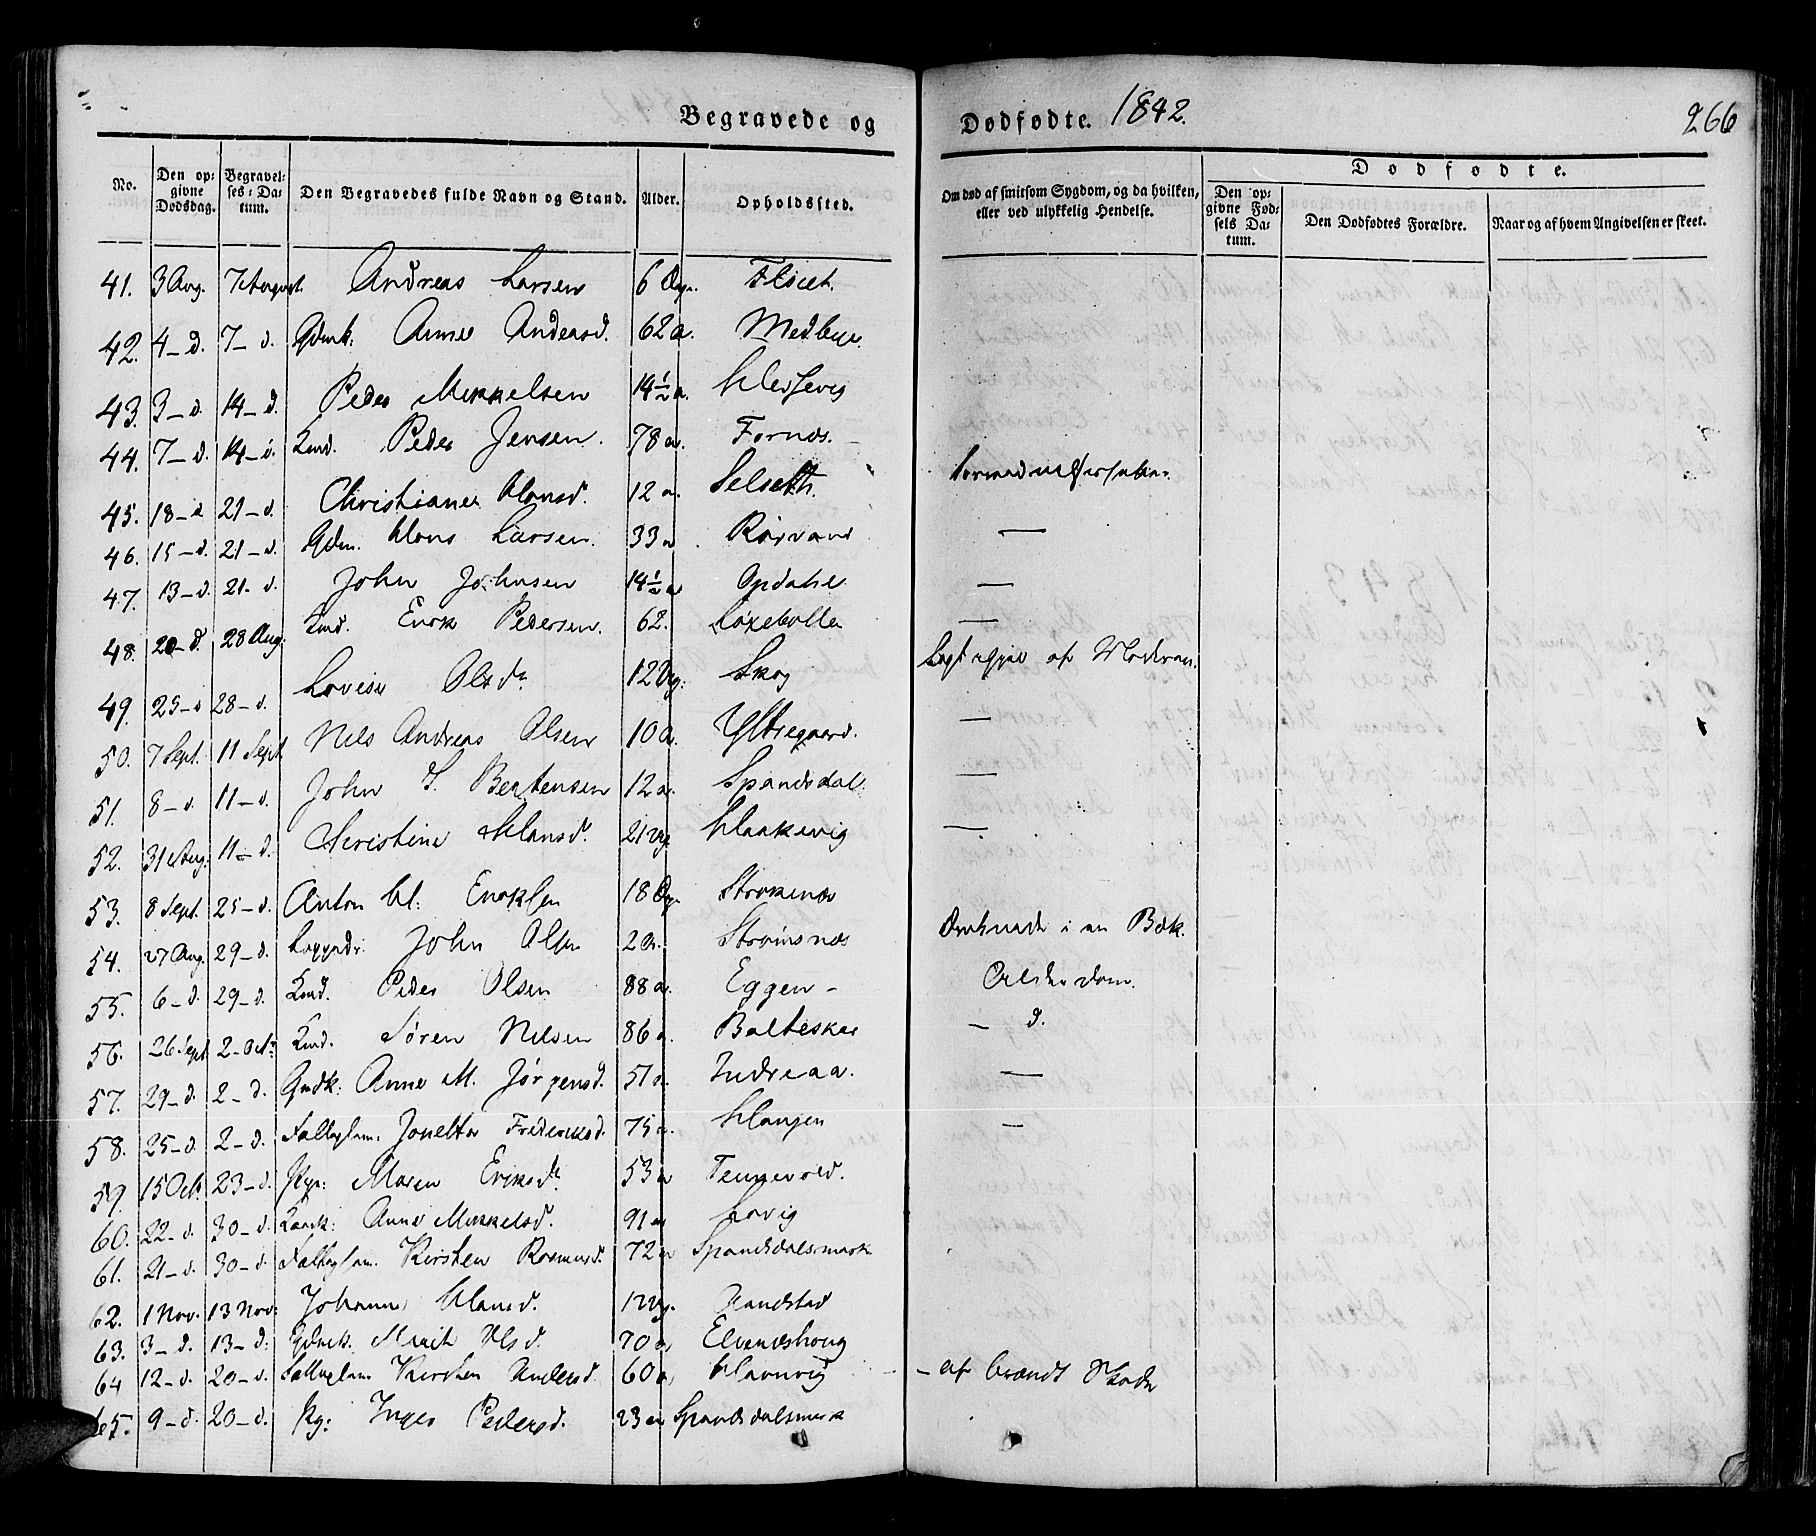 Begravede og Dødfødte. 1842. 266
No. Den opgivne Dødsdag. Begravelses-Datum. Den Begravedes fulde Navn og Stand. Alder. Opholdssted. Om død af smitsom Sygdom, og da hvilken, eller ved ulykkelig Hendelse. Dødfødte. Den opgivne Fødsels Datum. Den Dødfødtes Forældre. Naar og af hvem Angivelsen er skeet.
41. 3 Aug. 7 August. Andreas Larsen 6 Dage. Flaat.
42. 4 - d. 7 - d. Gdmk. Anne Andersd. 62 a. Medbye.
43. 3 - d. 14 - d. Peder Mikkelsen 14 1/2 a.
44. 7 - d. 14 - d. Knd. Peder Jensen. 78 a. Fornes.
45. 18 - d 21 - d. Christiane Hansd. 12 a. Selseth.
46. 15 - d. 21 - d. Gdm. Hans Larsen. 33 a. Rørvand —
47. 13 - d. 21 - d. John Johnsen 14 1/2 a Opdahl —
48. 20 - d. 28 Aug. Knd. Enok Pedersen. 62. Loxebotten —
49. 25 - d 28 - d. Lovise Olsdr. 12 Ug. Skog af Moderen.
50. 7 Sept. 11 Sept. Nils Andreas Olsen 10 a. Yttregaard. —
51. 8 - d. 11 - d. John S. Bertensen 12 a. Spandsdal. —
52. 31 Aug. 11 - d. Christine Hansd. 21 Ug. Haakevig —
53. 8 Sept. 25 - d. Anton H. Enoksen 18 Dage. Stokkenæs
54. 27 Aug. 29 - d. John Olsn 2 a. Strømsnæs Druknede i en Bæk.
55. 6 - d. 29 - d. Knd. Peder Olsen 88 a. Eggen - Alderdom.
56. 26 Sept. 2 - Octr. Knd. Søren Nilsen 86 a. Balteskar - d.
57. 29 - d. 2 - d. Gmdk: Anne M. Jørgensd. 51 a. Indreaa. —
58. 25 - d. 2 - d. Fattiglem. Jonetta Frederiksd. 75 a. Hangen —
59. 15 Oct. 23 - d. Pige: Maren Eriksdr. 53 a Tennevold.
60. 22 - d. 30 - d. Anne Mikkelsd. 91 a Lavig
61. 21 - d. 30 - d. Fattiglem. Kirsten Rasmusd. 72 a Spandsdalsmark
62. 1 Nov. 13 Nov. Johanne Hansd. 12 Ug. Randstad
63. 3 - d. 13 - d. Gdmk. Marit Olsd. 70 a Elvenæshoug
64 12 - d. 20 - d. Fattiglem Kirsten Andersd. 60 a Havnvig - af brændt Skade
65. 9 - d. 20 - d. Pg: Inger Pedersd. 23 a Spandsdalsmark